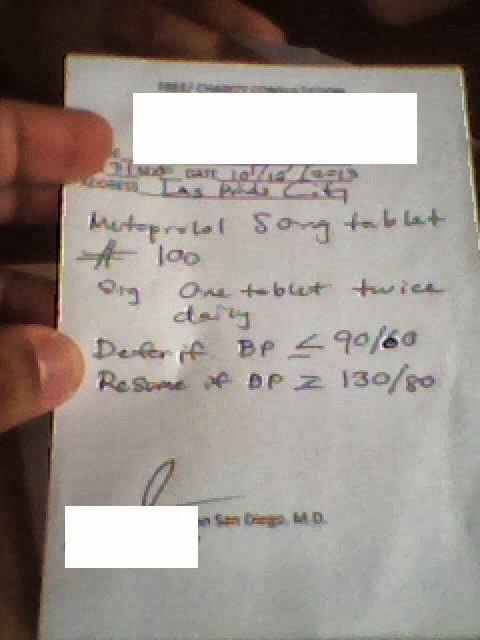 FREE/ CHARITY CONSULTATION
DATE 10/10/2013
ADDRESS Las Piñas City
Metoprolol 50mg tablet
# 100
Sig One tablet twice
daily
Defer if BP ≤ 90/60
Resume if BP ≥ 130/80
San Diego, M.D.